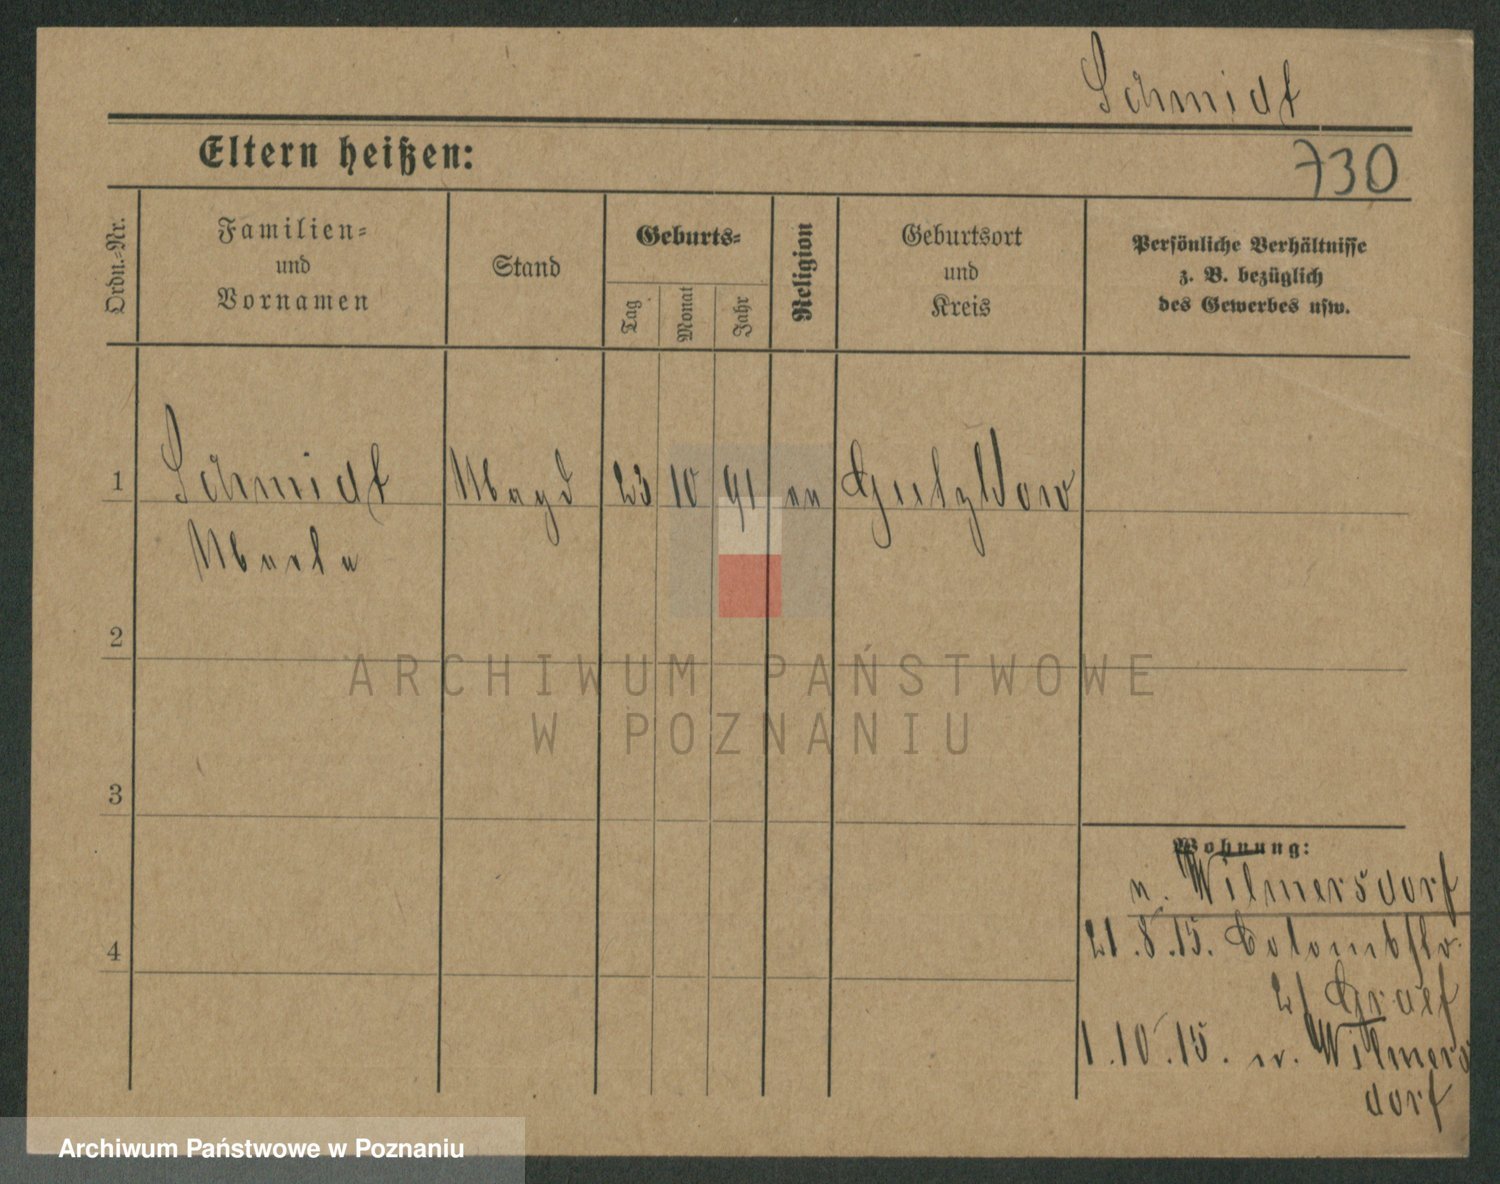 Schmidt
Eltern heißen:
730
Ordn.-Nr.
Familien-
und
Vornamen
Stand
Geburts-
Tag
Monat
Jahr
Religion
Geburtsort
und
Kreis
Persönliche Verhältnisse
z. B. bezüglich
des Gewerbes usw.
1
Schmidt Magd 23 10 91
2
ARCHIWUM PAŃSTWOWE
W POZNANIU
3
Wohnung:
n. Wilmersdorf
4
21.8.15. Colombstr.
21 Graef
1.10.15. n. Wilmers
dorf
Archiwum Państwowe w Poznaniu